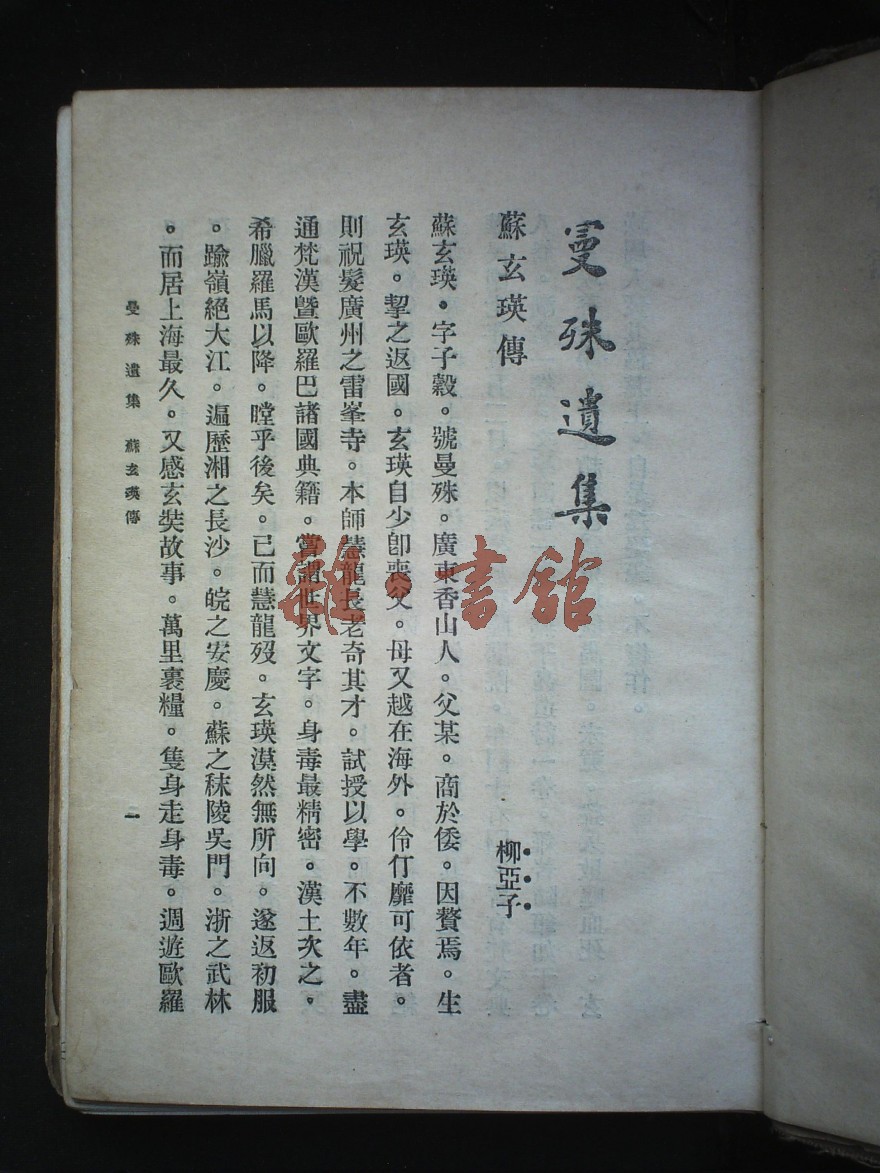 曼殊遺集
蘇玄瑛傳
柳亞子
蘇玄瑛。字子穀。號曼殊。廣東香山人。父某。商於倭。因贅焉。生
玄瑛。挈之返國。玄瑛自少卽喪父。母又越在海外。伶仃靡可依者。
則祝髮廣州之雷峯寺。本師慧龍長老奇其才。試授以學。不數年。盡
通梵漢暨歐羅巴諸國典籍。嘗謂世界文字。身毒最精密。漢土次之。
希臘羅馬以降。瞠乎後矣。已而慧龍歿。玄瑛漠然無所向。遂返初服
。踰嶺絕大江。遍歷湘之長沙。皖之安慶。蘇之秣陵吳門。浙之武林
。而居上海最久。又感玄奘故事。萬里裹糧。隻身走身毒。週遊歐羅
曼殊遺集 蘇玄瑛傳 一
雜·書館